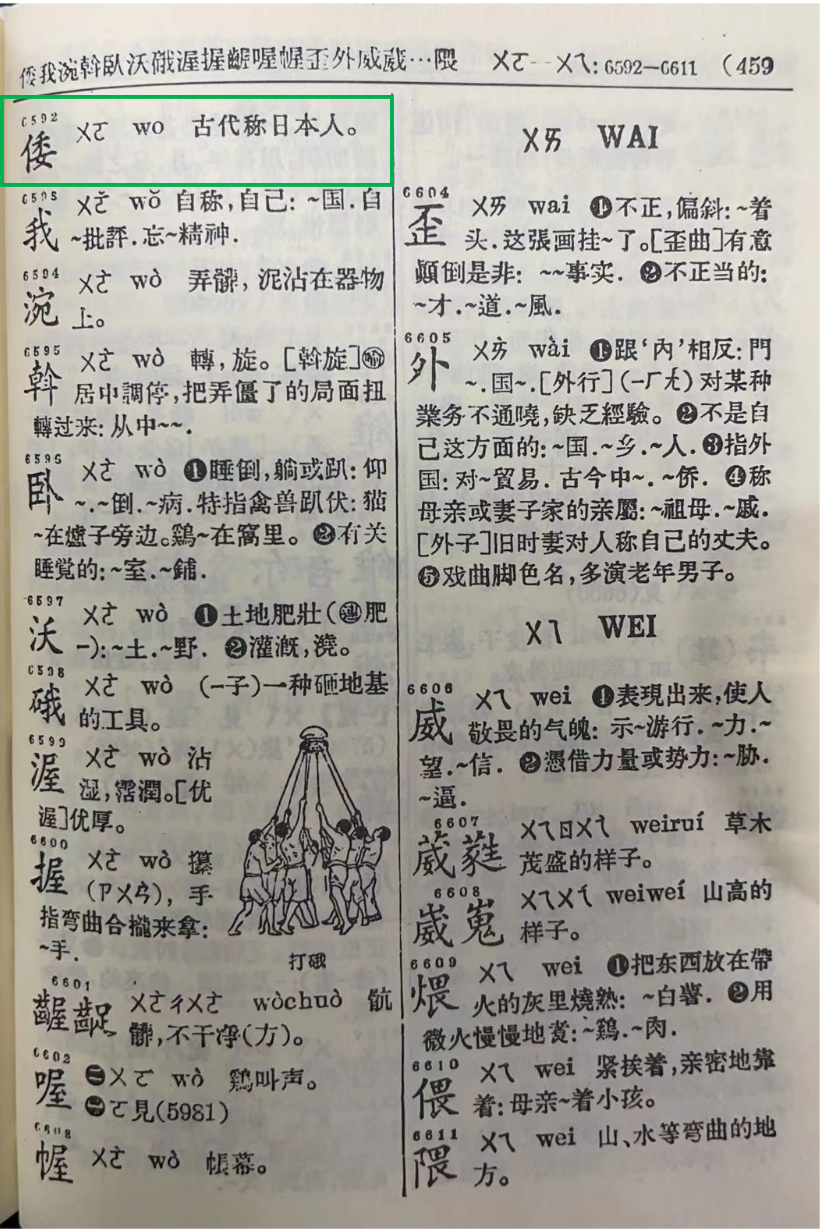 倭我涴斡臥沃硪渥握齷喔幄歪外威葳…隈 ㄨㄛ—ㄨㄟ: 6592—6611 (459
6592
倭 ㄨㄛ wo 古代称日本人。
6593
我 ㄨㄛˇ wǒ 自称,自己: ~国.自
~批評.忘~精神.
6594
涴 ㄨㄛˋ wò 弄髒, 泥沾在器物
上。
6595
斡 ㄨㄛˋ wò 轉, 旋。[斡旋]㊀喻
居中調停,把弄僵了的局面扭
轉过来: 从中~~.
6596
卧 ㄨㄛˋ wò ❶睡倒,躺或趴: 仰
~.~倒.~病.特指禽兽趴伏: 猫
~在爐子旁边。鷄~在窩里。❷有关
睡覚的: ~室.~鋪.
6597
沃 ㄨㄛˋ wò ❶土地肥壯(㊀連肥
—):~土.~野. ❷灌漑,澆。
6598
硪 ㄨㄛˋ wò (—子)一种砸地基
的工具。
6599
渥 ㄨㄛˋ wò 沾
湿,霑潤。[优
渥]优厚。
6600
握 ㄨㄛˋ wò 攥
(ㄗㄨㄢˋ), 手
指弯曲合攏来拿:
~手.
打硪
6601
齷齪 ㄨㄛˋㄔㄨㄛˋ wòchuò 骯
髒,不干凈(方)。
6602
喔 ㊀ㄨㄛ wò 鷄叫声。
㊁ㄛ見(5981)
6603
幄 ㄨㄛˋ wò 帳幕。
ㄨㄞ WAI
6604
歪 ㄨㄞ wai ❶不正,偏斜: ~着
头.这張画挂~了。[歪曲]有意
顚倒是非: ~~事实. ❷不正当的:
~才.~道.~風.
6605
外 ㄨㄞˋ wài ❶跟‘內’相反: 門
~.国~.[外行](—ㄏㄤˊ)对某种
業务不通曉,缺乏經驗。❷不是自
己这方面的: ~国.~乡.~人.❸指外
国: 对~貿易. 古今中~.~侨. ❹称
母亲或妻子家的亲屬: ~祖母.~戚.
[外子]旧时妻对人称自己的丈夫。
❺戏曲脚色名,多演老年男子。
ㄨㄟ WEI
6606
威 ㄨㄟ wei ❶表現出来,使人
敬畏的气魄: 示~游行.~力.~
望.~信. ❷憑借力量或势力: ~胁.
~逼.
6607
葳蕤 ㄨㄟㄖㄨㄟˊ weiruí 草木
茂盛的样子。
6608
崴嵬 ㄨㄟㄨㄟˊ weiweí 山高的
样子。
6609
煨 ㄨㄟ wei ❶把东西放在帶
火的灰里燒熟: ~白薯. ❷用
微火慢慢地煑: ~鷄.~肉.
6610
偎 ㄨㄟ wei 紧挨着,亲密地靠
着: 母亲~着小孩。
6611
隈 ㄨㄟ wei 山、水等弯曲的地
方。